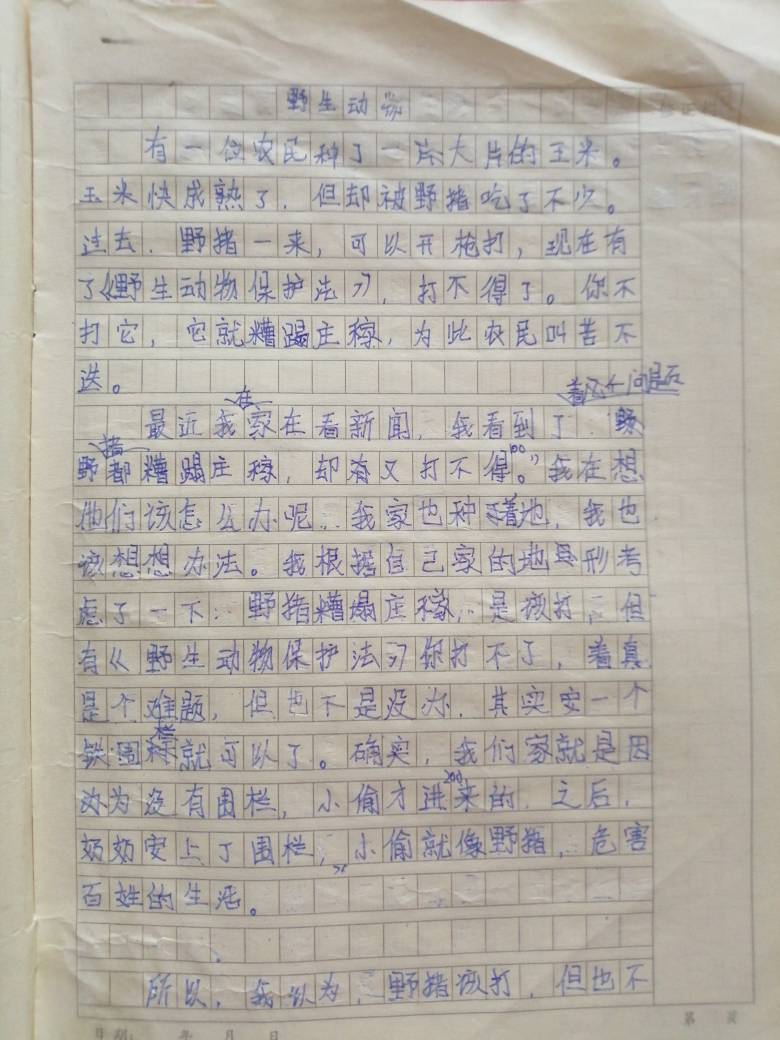 野生动物
有一位农民种了一片大片的玉米。
玉米快成熟了，但却被野猪吃了不少。
过去，野猪一来，可以开枪打，现在有
了《野生动物保护法》，打不得了。你不
打它，它就糟蹋庄稼，为此农民叫苦不
迭。
在
着这个问是否
最近我家在看新闻，我看到了
猪
野都糟蹋庄稼，却有又打不得。”我在想
100
他们该怎么办呢，我家也种着地，我也
该想想办法。我根据自己家的地形考
虑了一下：野猪糟蹋庄稼，是该打，但
有《野生动物保护法》你打不了，着真
是个难题，但也不是没办，其实安一个
栏
铁围就可以了。确实，我们家就是因
200
为没有围栏，小偷才进来的，之后，
奶奶安上了围栏，小偷就像野猪，危害
百姓的生活。
所以，我以为，野猪该打，但也不
第 页
日期： 年 月 日